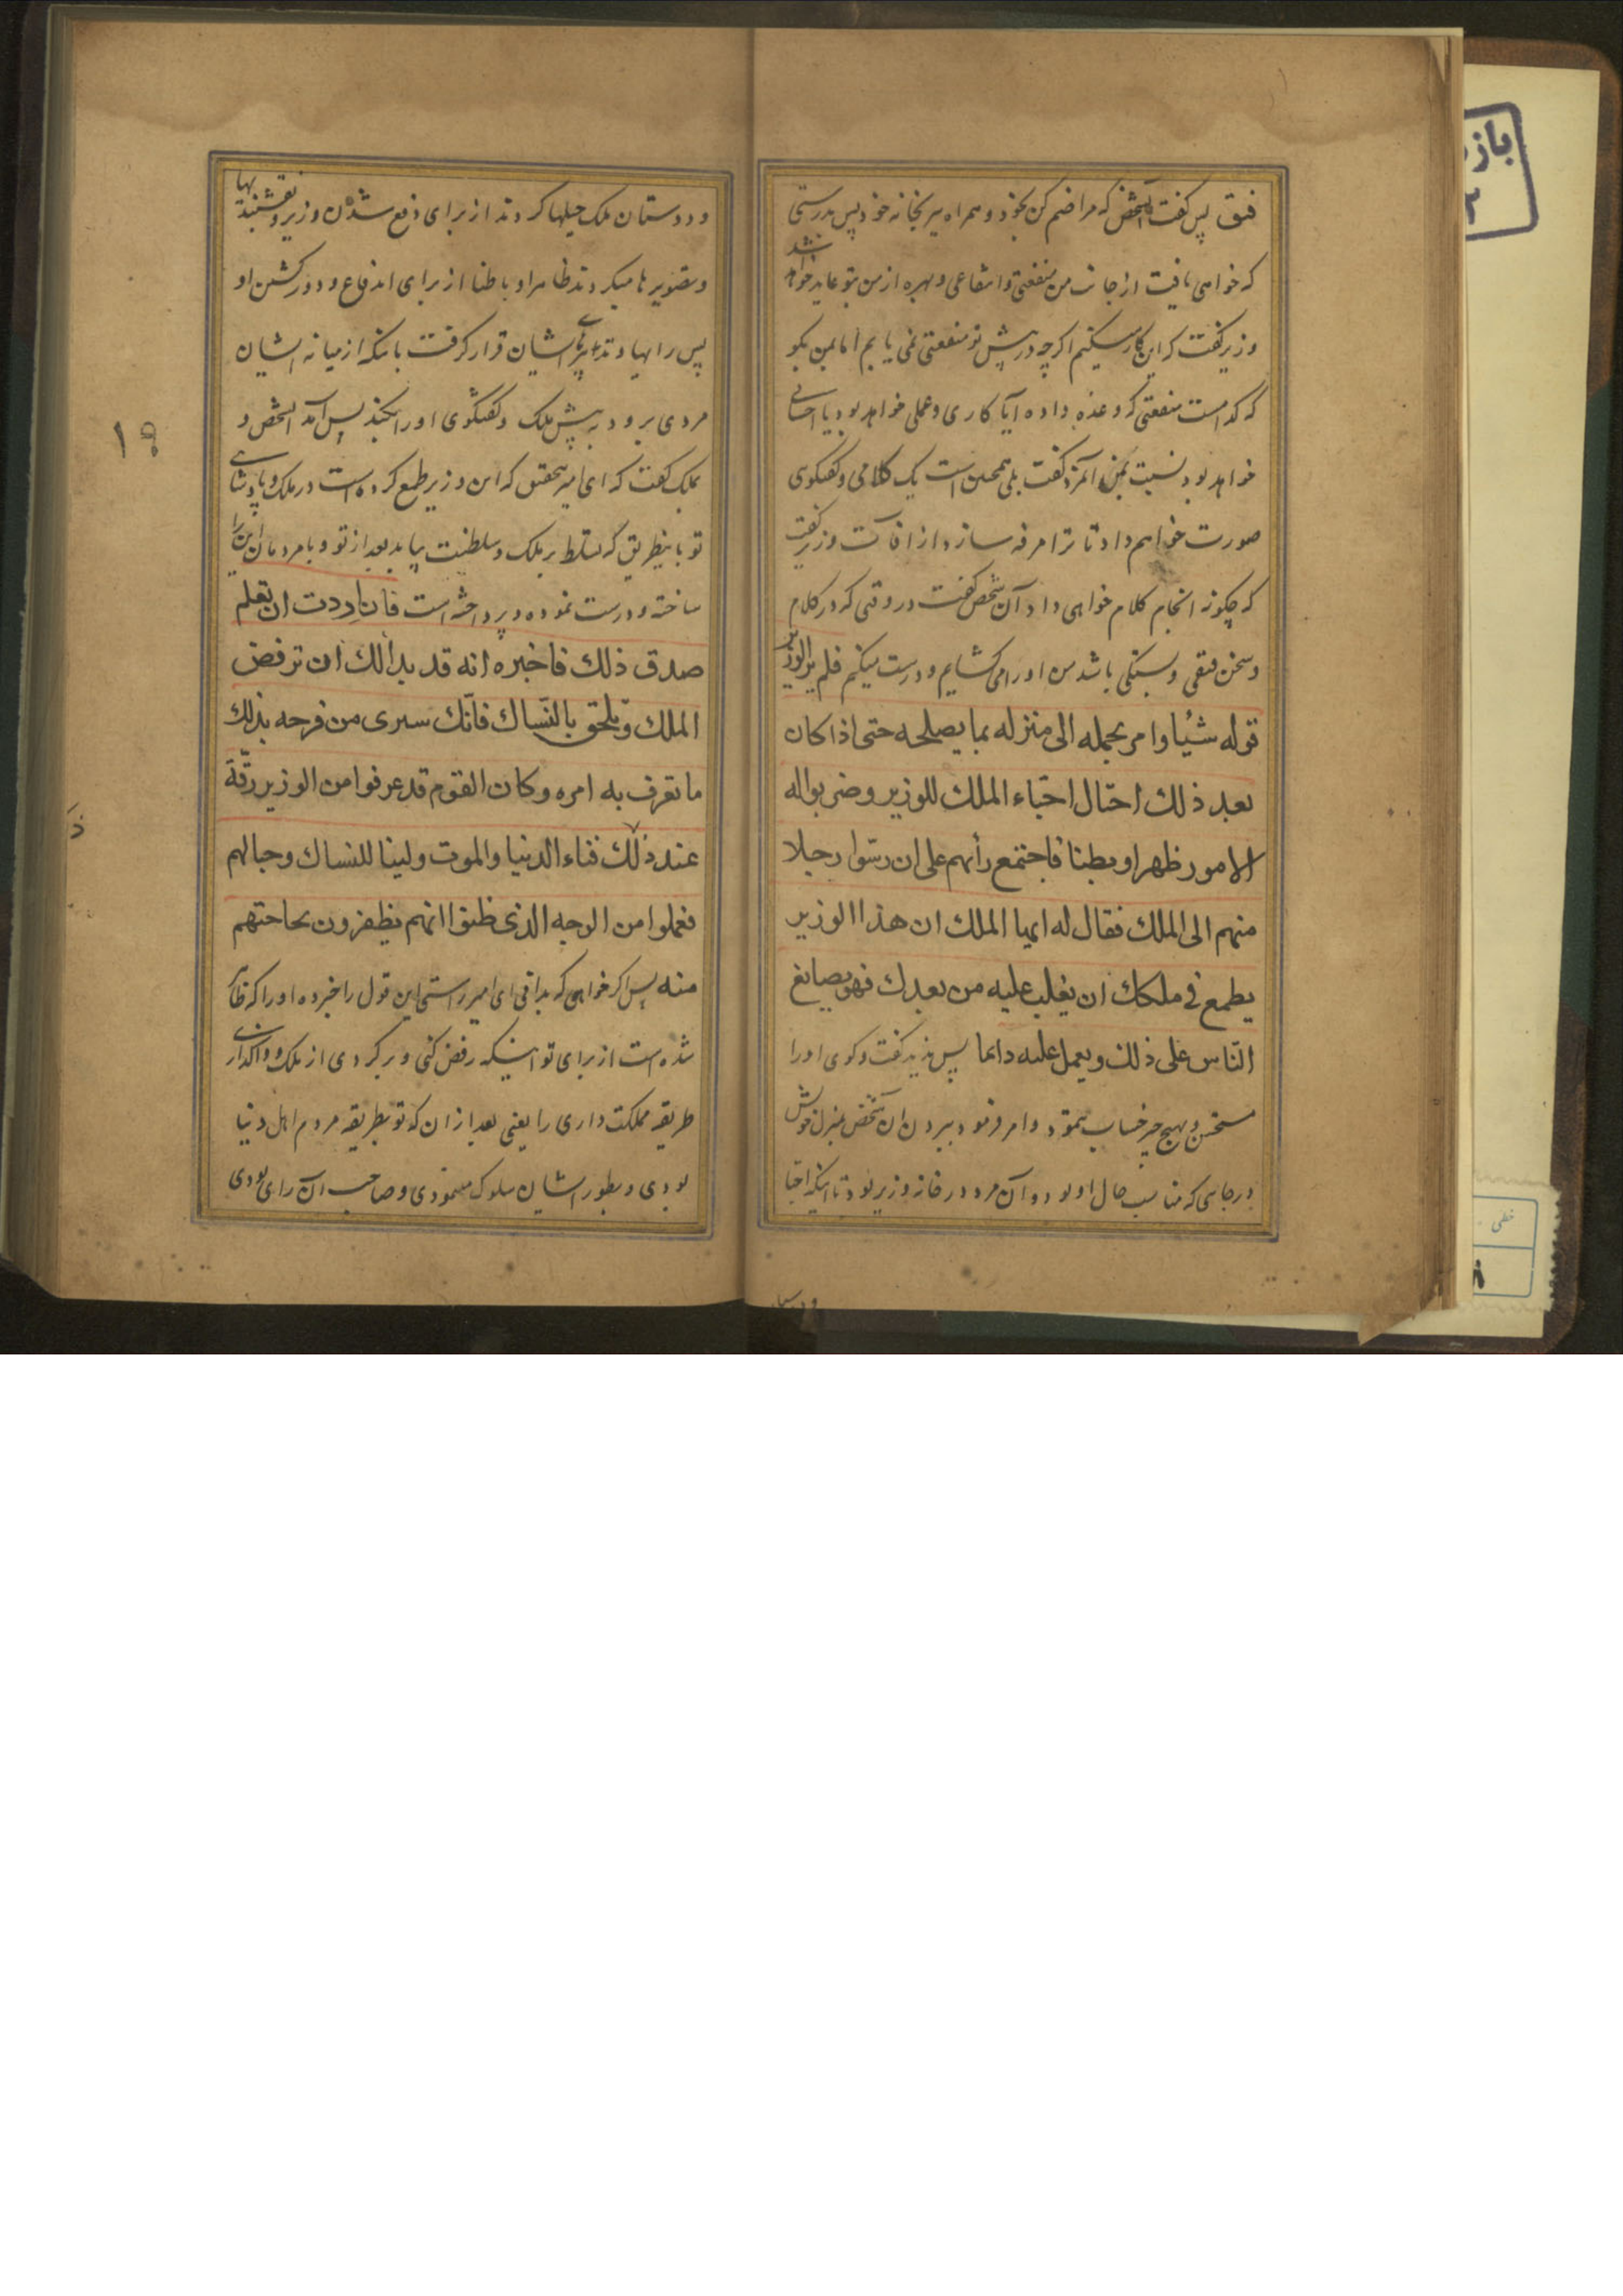 فتق پس گفت آنشخص که مرا ضم کن بخود و همراه ببر بخانه خود پس بدرستی
که خواهی یافت از جانب من منفعتی و انتفاعی و بهره از من بتو عاید خواهد شد
وزیر گفت که این کار میکنم اگر چه در پیش تو منفعتی نمی یابم اما بمن بگو
که کدامست منفعتی که وعده داده آیا کاری و عملی خواهد بود یا احسانی
خواهد بود نسبت بمن آنمرد گفت بلی همچنین است یک کلامی و گفتگوی
صورت خواهم داد تا ترا مرفه سازد از آفات وزیر گفت
که چگونه انجام کلام خواهی داد آن شخص گفت در وقتی که در کلام
و سخن فتقی و بستگی باشد من او را می گشایم و درست میکنم فلم یر الوزیر
قوله شیئا و امر بحمله الی منزله بما یصلحه حتی اذا کان
بعد ذلك احتال احبّاء الملك للوزیر و ضربوا له
الامور ظهرا و بطنا فاجتمع رأیهم علی ان دسّوا رجلا
منهم الی الملك فقال له ایها الملك ان هذا الوزیر
یطمع فی ملکك ان یغلب علیه من بعدك فهو یصانع
النّاس علی ذلك و یعمل علیه دایما پس ندید گفت و گوی او را
مستحسن و بهیچ چیز حساب ننمود و امر فرمود ببردن آن شخص بمنزل خویش
در جایی که مناسب حال او بود و آن مرد در خانه وزیر بود تا اینکه احبا
و دوستان
و دوستان ملک حیلها کردند از برای دفع شدن وزیر و نقشبندیها
و تصویرها میکردند ظاهرا و باطنا از برای اندفاع و دور کشتن او
پس رایها و تدبیرهای ایشان قرار گرفت باینکه از میانه ایشان
مردی برود به پیش ملک و گفتگوی او را بکند پس آمد آنشخص و
بملک گفت که ای امیر بتحقیق که این وزیر طمع کرده است در ملک و پادشاهی
تو باینطریق که تسلط بر ملک و سلطنت بیابد بعد از تو و با مردمان این را
ساخته و درست نموده و پرداخته است فان اردت ان تعلم
صدق ذلك فاخبره انه قد بدا لك ان ترفض
الملك و تلحق بالنّساك فانّك ستری من فرحه بذلك
ما تعرف به امره و کان القوم قد عرفوا من الوزیر رقّة
عند ذلك فناء الدنیا و الموت و لینا للنساك و حبا لهم
فعملوا من الوجه الذی ظنوا انهم یظفرون بحاجتهم
منه پس اگر خواهی که بدانی ای امیر راستی این قول را خبر ده او را که ظاهر
شده است از برای تو اینکه رفض کنی و برگردی از ملک و واگذاری
طریقه مملکت داری را یعنی بعد از آن که تو بطریقه مردم اهل دنیا
بودی و بطور ایشان سلوک مینمودی و صاحب آن رای بودی
۱۹
خطی